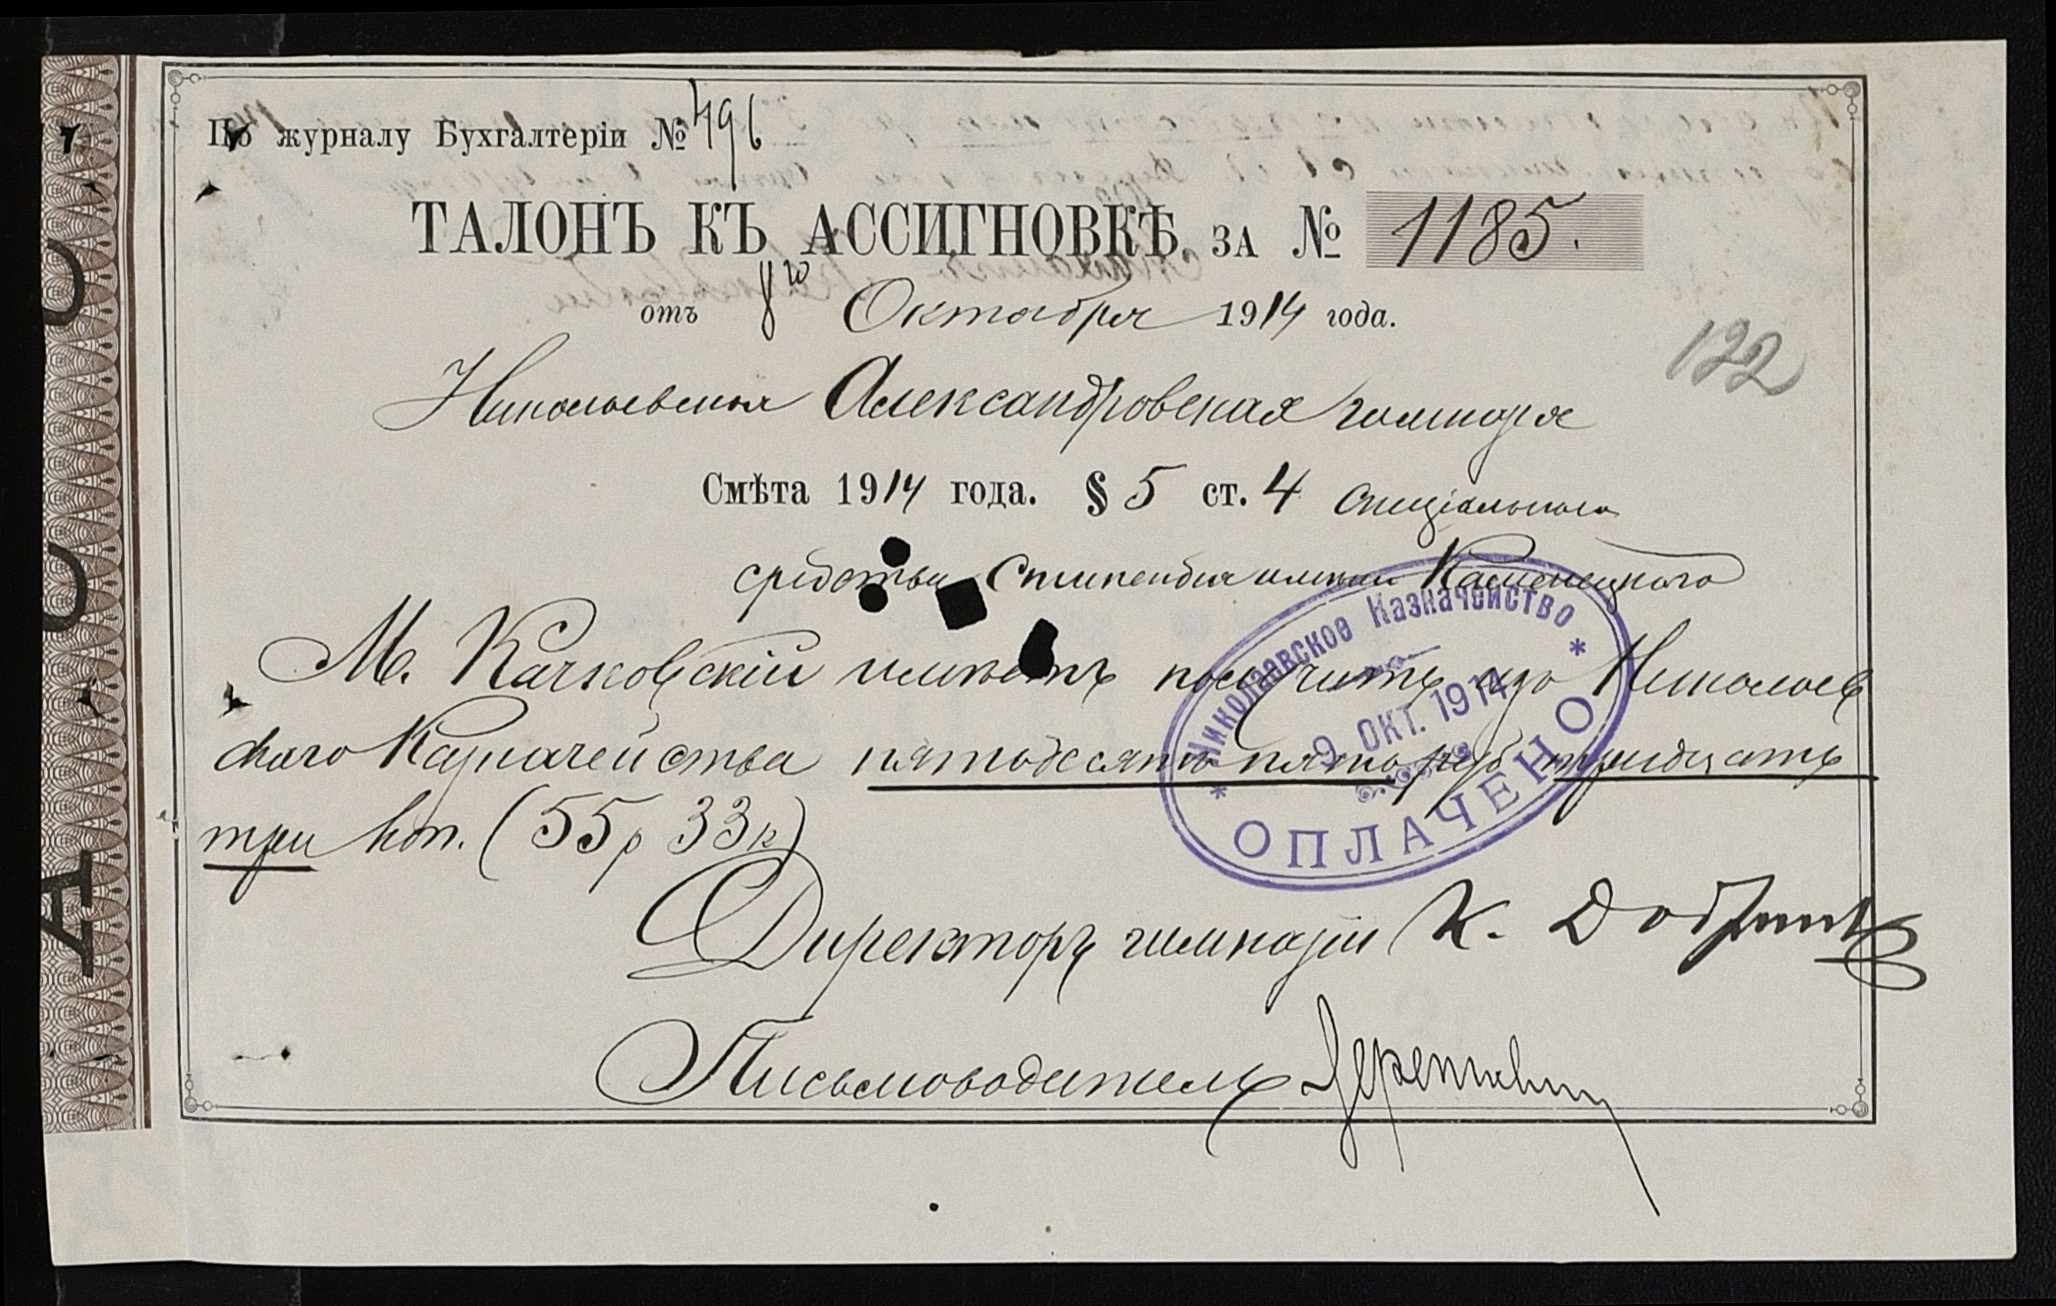 По журналу Бухгалтеріи № 496
ТАЛОНЪ КЪ АССИГНОВКѢ ЗА № 1185.
отъ 8го Октября 1914 года.
122
Николаевская Александровская гимназія
Смѣта 1914 года. § 5 ст. 4 спеціальныя
средства Стипендія имени Каменецкаго
М. Качковскій имѣетъ получить изъ Николаев
скаго Казначейства пятьдесятъ пять руб тридцать
три коп. (55 р 33 к)
Николаевское Казначейство
9 ОКТ. 1914
ОПЛАЧЕНО
Директоръ гимназіи К.
Письмоводитель
А С С